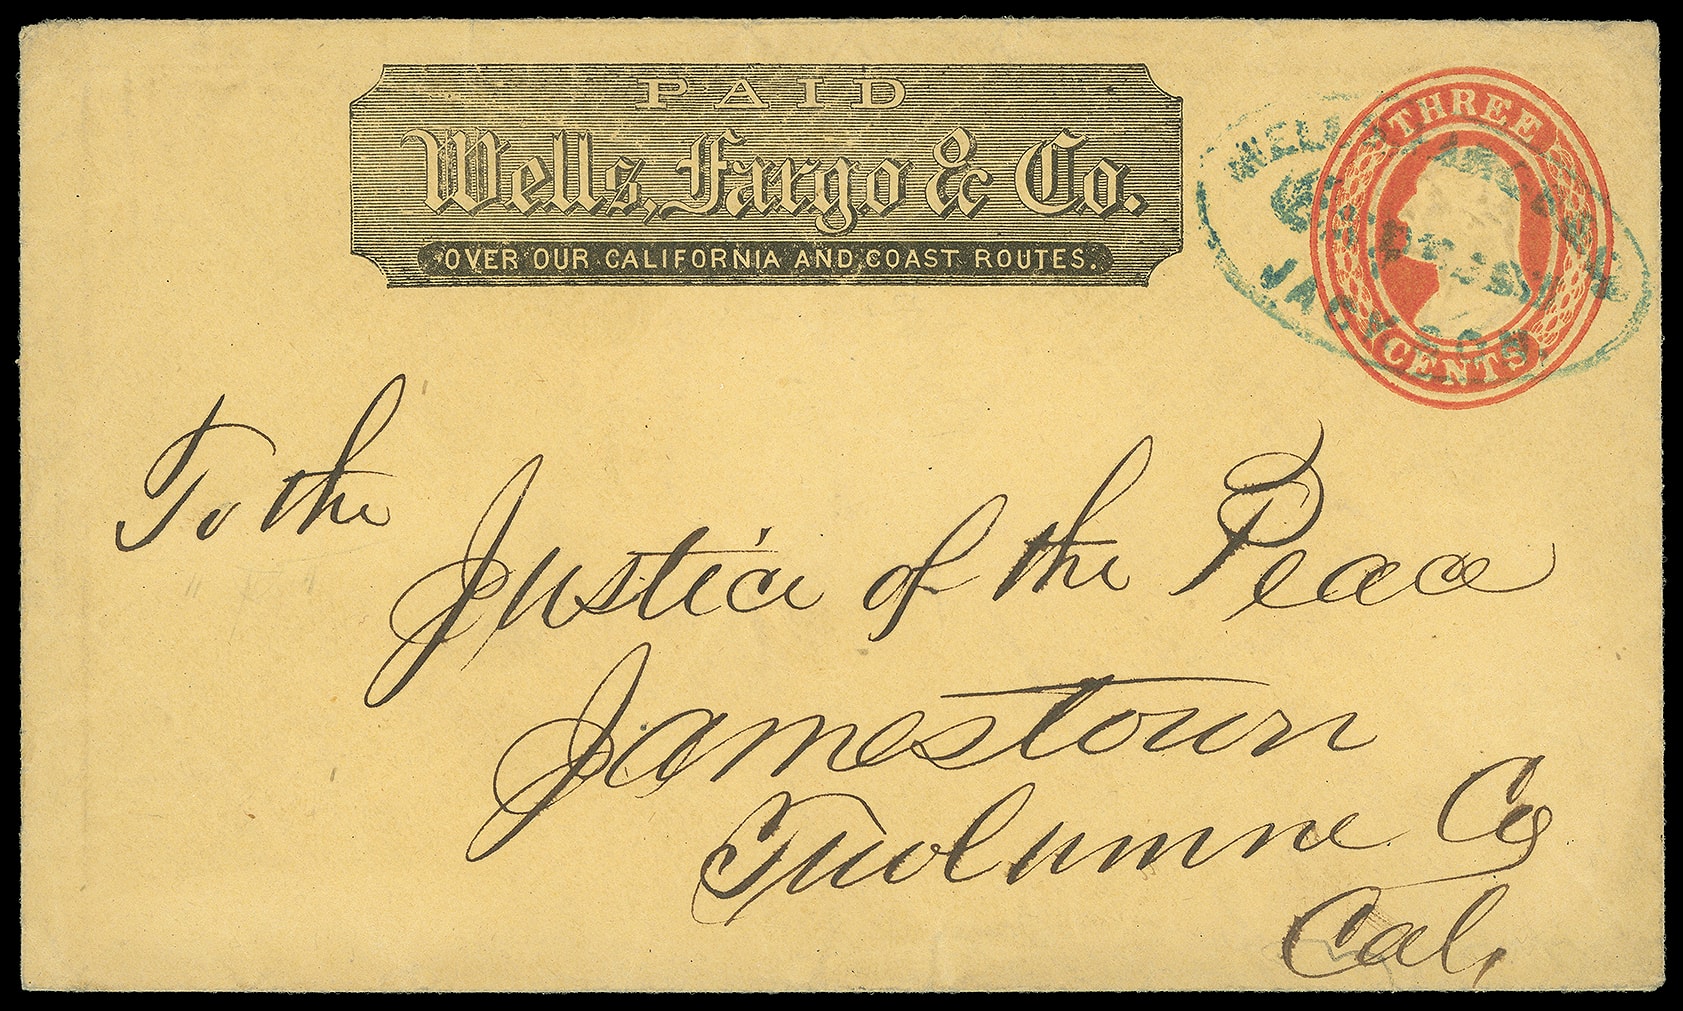 PAID
Wells, Fargo & Co.
OVER OUR CALIFORNIA AND COAST ROUTES.
THREE
CENTS
WELLS FARGO
JACKSON.
To the
Justice of the Peace
Jamestown
Tuolumne Co
Cal,